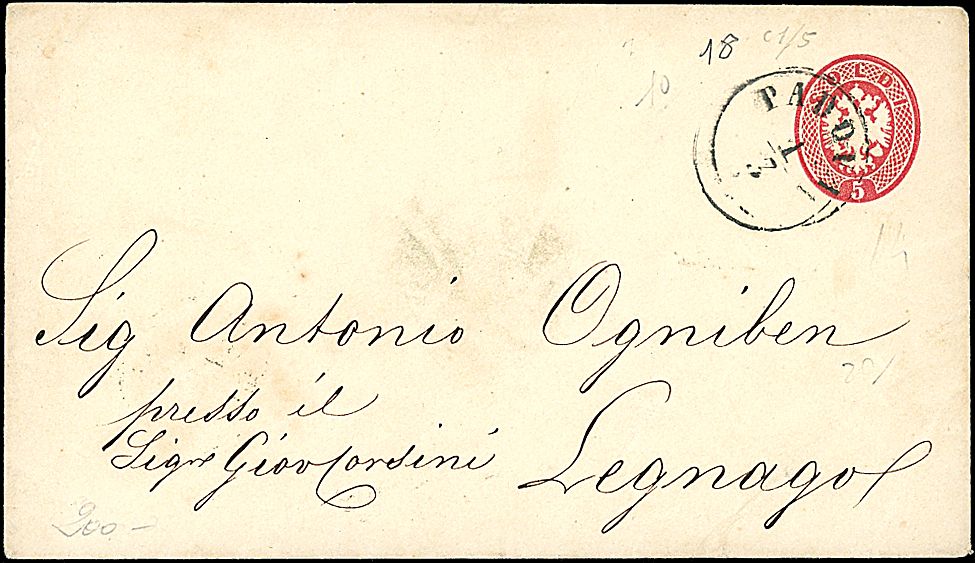 18 c1/5
10
SOLDI
PADOVA
5
Sig Antonio Ogniben
presso il
Sigre Giov Corsini
Legnago
200 -